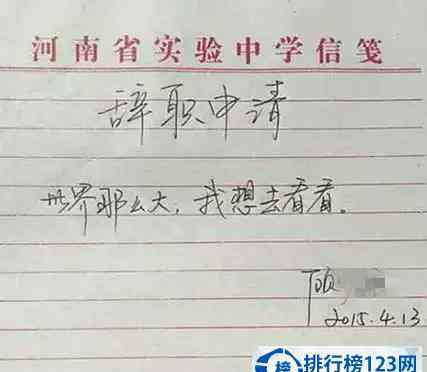 河南省实验中学信笺
辞职申请
世界那么大，我想去看看。
顾
2015.4.13
榜 排行榜123网